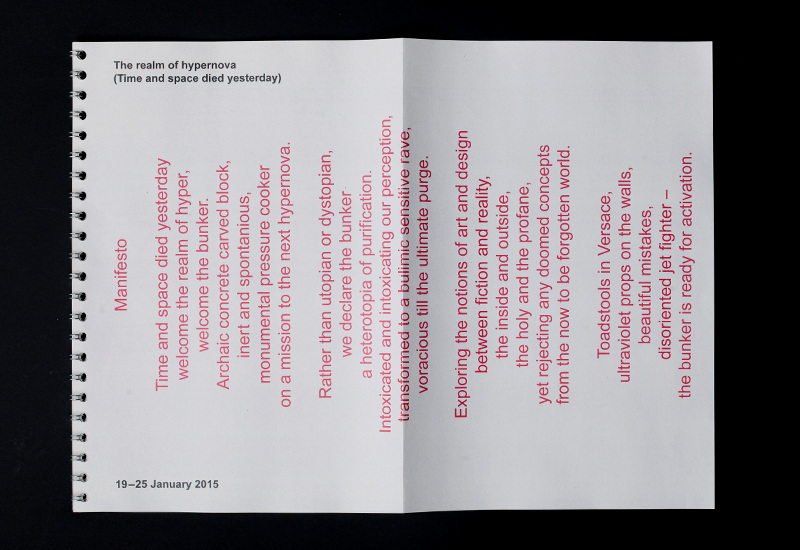 The realm of hypernova
(Time and space died yesterday)
Manifesto
Time and space died yesterday
welcome the realm of hyper,
welcome the bunker.
Archaic concrete carved block,
inert and spontanious,
monumental pressure cooker
on a mission to the next hypernova.
Rather than utopian or dystopian,
we declare the bunker
a heterotopia of purification.
Intoxicated and intoxicating our perception,
transformed to a bulimic sensitive rave,
voracious till the ultimate purge.
Exploring the notions of art and design
between fiction and reality,
the inside and outside,
the holy and the profane,
yet rejecting any doomed concepts
from the now to be forgotten world.
Toadstools in Versace,
ultraviolet props on the walls,
beautiful mistakes,
disoriented jet fighter –
the bunker is ready for activation.
19–25 January 2015